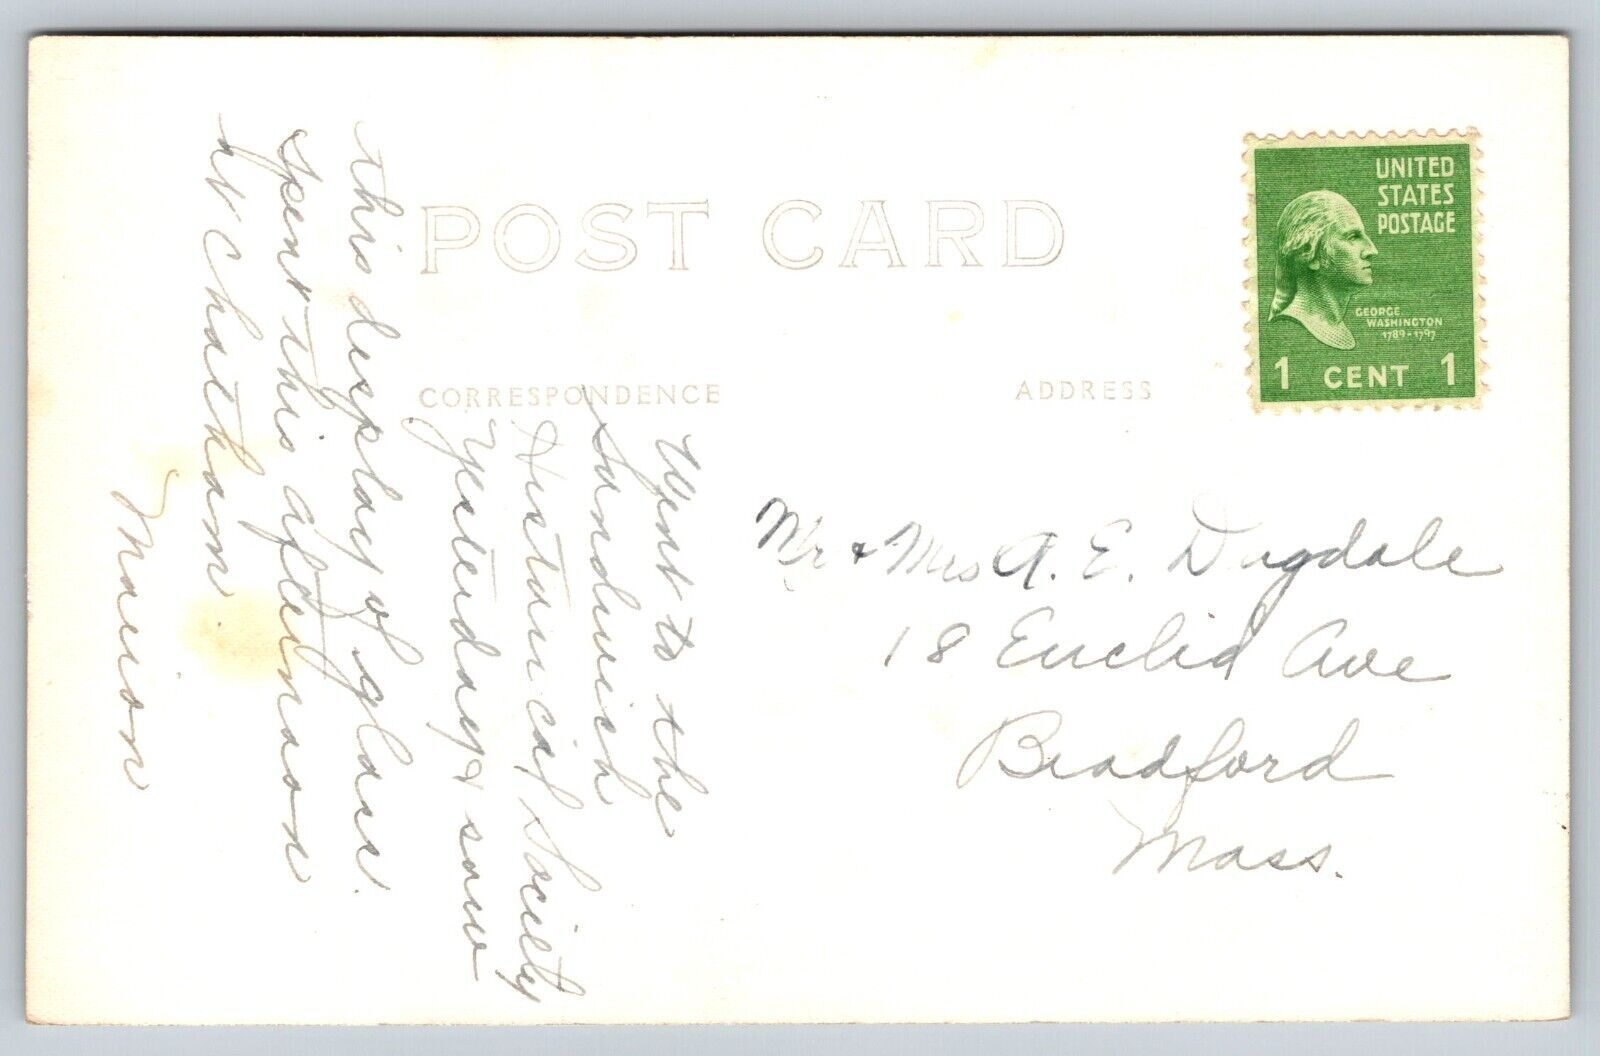 POST CARD
CORRESPONDENCE
ADDRESS
UNITED
STATES
POSTAGE
GEORGE
WASHINGTON
1789-1797
1 CENT 1
Went to the
Sandwich
Historical Society
Yesterday & saw
this display of glass.
Spent this afternoon
at Chatham
Marion
Mr & Mrs A. E. Dugdale
18 Euclid Ave
Bradford
Mass.